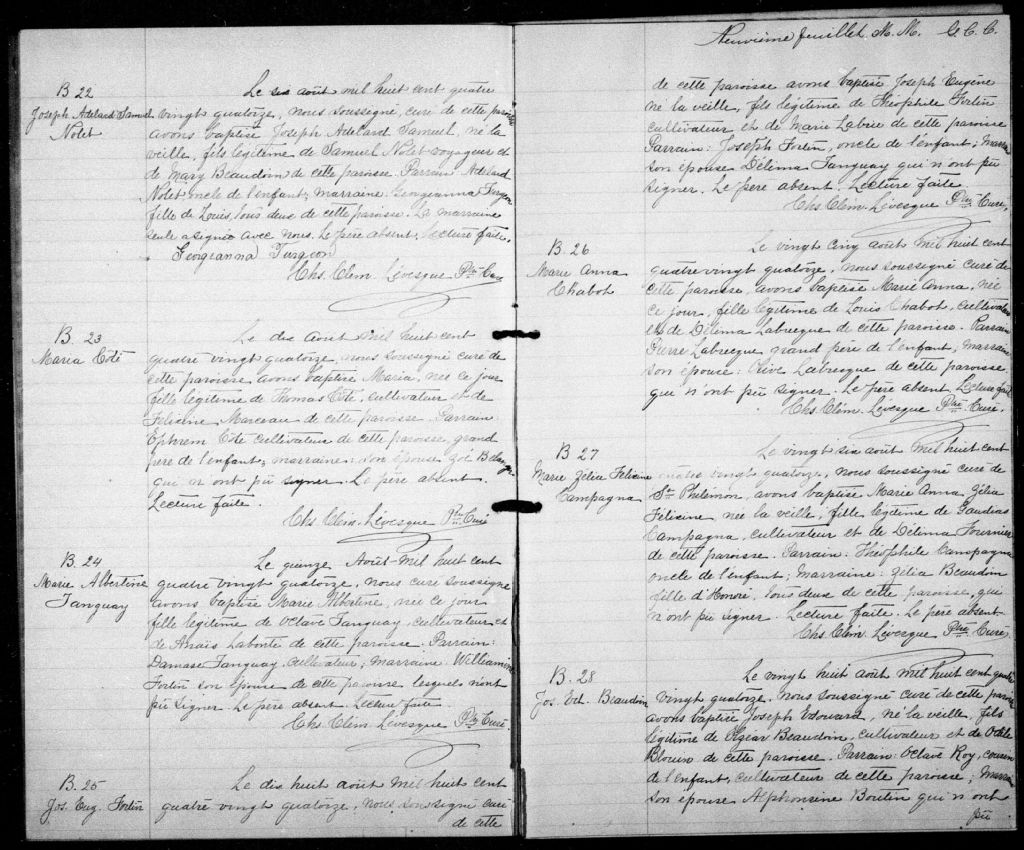 B 22
Joseph Adélard Samuel
Nolet
Le six août mil huit cent quatre
vingt quatorze, nous soussigné, curé de cette paroisse
avons baptisé Joseph Adélard Samuel, né la
veille, fils légitime de Samuel Nolet voyageur et
de Mary Beaudoin de cette paroisse. Parrain Adélard
Nolet oncle de l'enfant; marraine Georgeanna Turgeon
fille de Louis, tous deux de cette paroisse. La marraine
seule a signé avec nous. Le père absent. Lecture faite.
Georgianna Turgeon
Chs. Clém. Lévesque Ptre Curé
B. 23
Maria Coté
Le dix Août mil huit cent
quatre vingt quatorze, nous soussigné curé de
cette paroisse avons baptisé Maria, née ce jour
fille légitime de Thomas Coté, cultivateur et de
Félicine Marceau de cette paroisse. Parrain
Ephrem Coté cultivateur de cette paroisse, grand
père de l'enfant; marraine son épouse Zoé Belanger
qui n'ont pu signer. Le père absent.
Lecture faite.
Chs. Clém. Lévesque Ptre Curé
B. 24
Marie Albertine
Tanguay
Le quinze Août mil huit cent
quatre vingt quatorze, nous curé soussigné
avons baptisé Marie Albertine, née ce jour
fille légitime de Octave Tanguay, cultivateur et
de Anaïs Labonté de cette paroisse. Parrain:
Damase Tanguay, cultivateur; marraine Williamine
Fortin son épouse de cette paroisse lesquels n'ont
pu signer. Le père absent. Lecture faite
Chs. Clém. Lévesque Ptre Curé.
B. 25
Jos. Eug. Fortin
Le dix huit août mil huit cent
quatre vingt quatorze, nous soussigné curé
de cette
Neuvième feuillet M. M. C. C. C.
de cette paroisse avons baptisé Joseph Eugène
né la veille, fils légitime de Théophile Fortin
cultivateur et de Marie Labrie de cette paroisse
Parrain: Joseph Fortin, oncle de l'enfant; Marraine
son épouse Délima Tanguay qui n'ont pu
signer. Le père absent. Lecture faite
Chs. Clém. Lévesque Ptre Curé,
B. 26
Marie Anna
Chabot
Le vingt cinq août mil huit cent
quatre vingt quatorze, nous soussigné curé de
cette paroisse, avons baptisé Marie Anna, née
ce jour, fille légitime de Louis Chabot, cultivateur
et de Délima Labrecque de cette paroisse. Parrain
Pierre Labrecque grand père de l'enfant, Marraine
son épouse: Olive Labrecque de cette paroisse,
qui n'ont pu signer. Le père absent. Lecture faite
Chs. Clém. Lévesque Ptre Curé.
B 27
Marie Zélia Félicine
Campagna
Le vingt six août mil huit cent
quatre vingt quatorze, nous soussigné curé de
St Philémon, avons baptisé Marie Anna Zélia
Félicine née la veille, fille légitime de Gaudias
Campagna, cultivateur et de Délima Fournier
de cette paroisse. Parrain: Théophile Campagna
oncle de l'enfant; Marraine: Zélia Beaudoin
fille d'Honoré, tous deux de cette paroisse, qui
n'ont pu signer. Lecture faite. Le père absent
Chs. Clém. Lévesque Ptre Curé,
B. 28
Jos. Ed. Beaudoin
Le vingt huit août mil huit cent quatre
vingt quatorze, nous soussigné curé de cette paroisse
avons baptisé Joseph Edouard, né la veille, fils
légitime de Elzéar Beaudoin, cultivateur et de Odile
Blouin de cette paroisse. Parrain: Octave Roy, cousin
de l'enfant, cultivateur de cette paroisse; Marraine
son épouse Alphonsine Boutin qui n'ont
pu